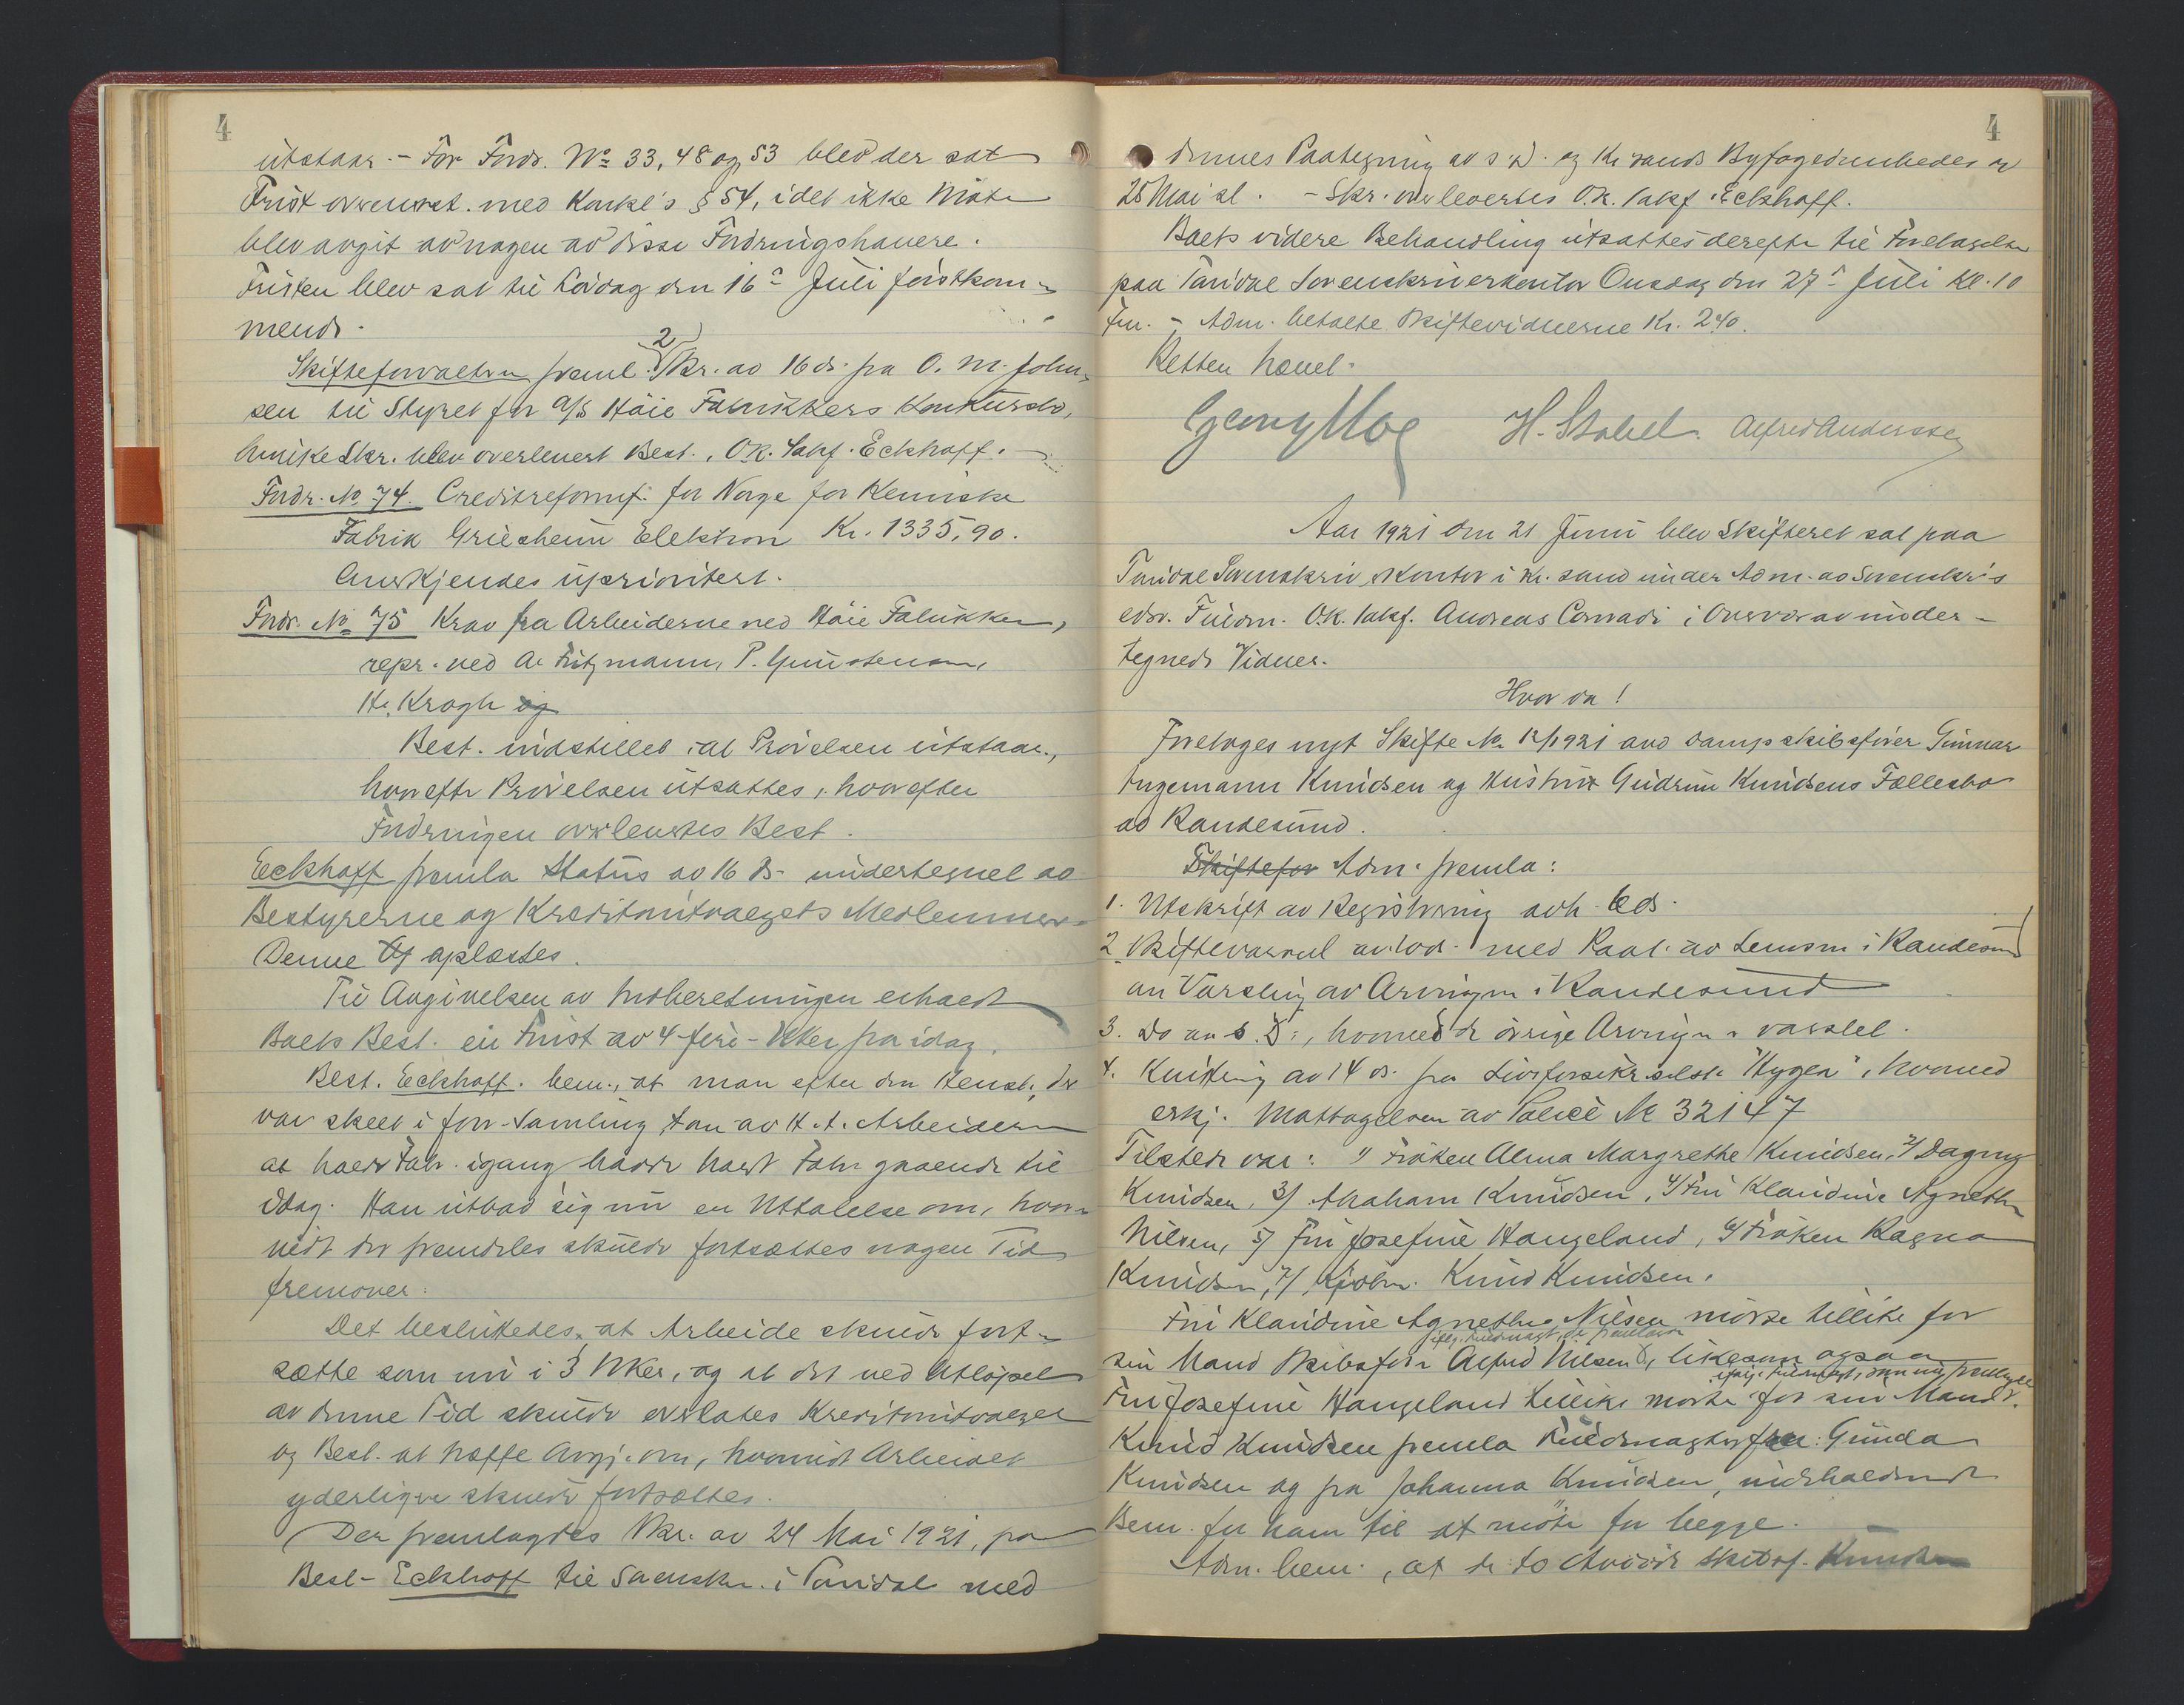 4
utstaar. – For Fordr. No 33, 48 og 53 blev der sat
Frist overenst. med Konkl's § 54, idet ikke Møte
blev avgit av nogen av disse Fordringshavere.
Fristen blev sat til Lørdag den 16de Juli førstkom-
mende.
Skifteforvalteren freml. 2) Skr. av 16 ds. fra O. M. John-
sen til Styret for A/S Høie Fabrikkers Konkursbo,
hvilke Skr. blev overlevert Best., O.R. Sakf. Eckhoff. –
Fordr. No 74. Creditreformf. for Norge for Kemiske
Fabrik Griesheim Elektron Kr. 1335,90.
Anerkjendes uprioritert.
Fordr. No 75 Krav fra Arbeiderne ved Høie Fabrikker,
repr. ved A. Fritzmann, P. Gunstensen,
H. Krogh og
Best. indstillet at Prøvelsen utstaar,
hvorefter Prøvelsen utsattes, hvorefter
Fordringen overlevertes Best.
Eckhoff fremla Status av 16 ds. undertegnet av
Bestyrerne og Kreditorutvalgets Medlemmer.
Denne oplæstes.
Til Avgivelsen av Indberetningen erholdt
Boets Best. en Frist av 4 – fire – Uker fra idag.
Best. Eckhoff bem., at man efter den Henst., der
var skeet i forr. Samling fan av H. A. Arbeidern
at holde Fabr. igang hadde holdt Fabr. gaaende til
idag. Han utbad sig nu en Uttalelse om, hvor-
vidt der fremdeles skulde fortsættes nogen Tid
fremover.
Det besluttedes, at Arbeide skulde fort-
sætte som nu i 3 Uker, og at det ved Utløpet
av denne Tid skulde overlates Kreditorutvalget
og Best. at træffe Avgj. om, hvorvidt Arbeidet
yderligere skulde fortsættes.
Der fremlagdes Skr. av 24 Mai 1921, fra
Best. Eckhoff til Sorenskr. i Torridal med
4
dennes Paategning av s. D. og Kr.sands Byfogedembedes av
25 Mai sl. – Skr. overlevertes O.R. Sakf. Eckhoff.
Boets videre Behandling utsattes derefter til Foretagelse
paa Torridal Sorenskriverkontor Onsdag den 27de Juli Kl. 10
Fm. – Adm. betalte Skiftevidnerne Kr. 2.40.
Retten hævet.
Georg Moe H. Stabel. Alfred Anderssen
Aar 1921 den 21 Juni blev Skifteret sat paa
Torridal Sorenskriverkontor i Kr.sand under Adm. av Sorenskr's
edsv. Fuldm. O.R. Sakf. Andreas Conradi i Overvær av under-
tegnede Vidner.
Hvor da!
Foretoges nyt Skifte No 12/1921 avd dampskibsfører Gunnar
Ingemann Knudsen og Hustru Gudrun Knudsens Fællesbo
av Randesund.
Skiftefor Adm. fremla:
1. Utskrift av Registrering avh. 6 ds.
2. Skiftevarsel med Paat. av Lensm. i Randesund
om Varsling av Arvingen i Randesund
3. Do av s. D., hvorved de øvrige Arvinger er varslet.
4. Kvittering av 14 ds. fra Livsforsikr.selsk. "Hygea", hvorved
erkj. Mottagelsen av Police No 32147
Tilstede var: 1) Frøken Alma Margrethe Knudsen, 2) Dagny
Knudsen, 3) Abraham Knudsen, 4) Fru Klaudine Agnethe
Nilsen, 5) Fru Josefine Haugeland, 6) Frøken Ragna
Knudsen, 7) Kjøbm. Knud Knudsen.
Fru Klaudine Agnethe Nilsen møtte tillike for
iflg. fuldmagt, de fremlagde
sin Mand Skibsfører Alfred Nilsen, likesom ogsaa
iflg. fuldmagt, som nu fremlagde
Fru Josefine Haugeland tillike møtte for sin Mand.
Knud Knudsen fremla Fuldmagter fra: Gunda
Knudsen og fra Johanna Knudsen, indeholdende
Bem. for ham til at møte for begge.
Adm. bem., at de to Avdøde Skibsf. Knudsen